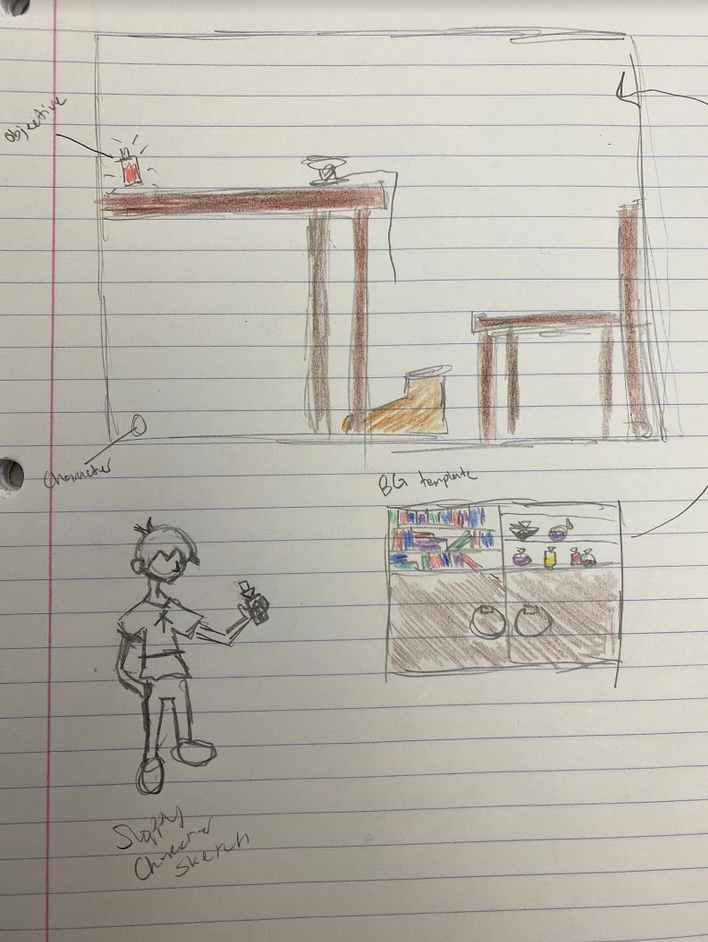 Objective
Character
BG template
Sloppy
Character
Sketch